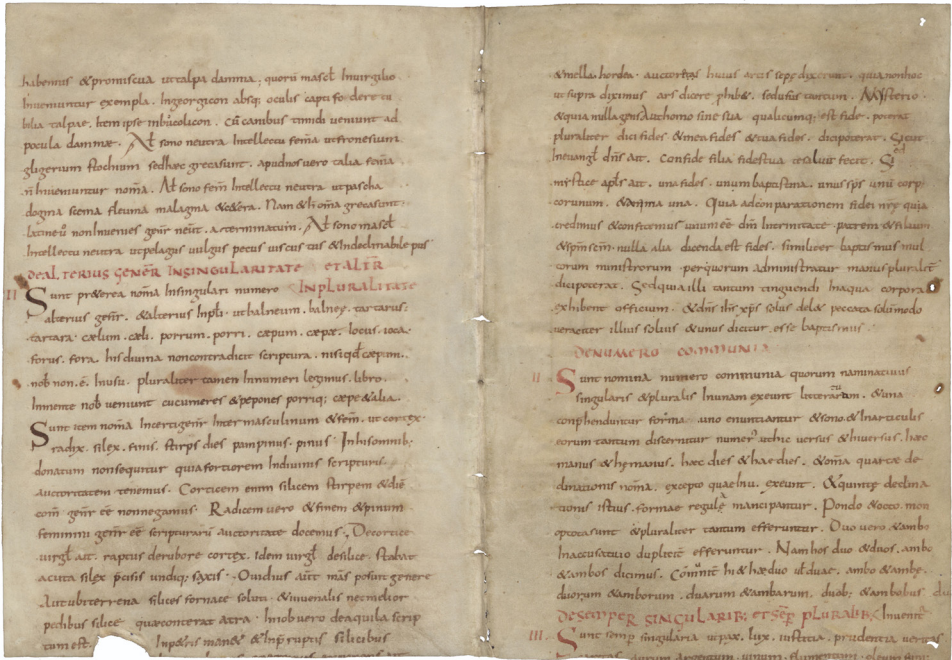 habemus & promiscua ut talpa damma. quorū mascł Invirgilio
Inveniuntur exempla. Ingeorgicon absq; oculis capti fodere cu
bilia talpae. Item ipse Inbucolicon. Cū canibus timidi veniunt ad
pocula dammae. Aƚ sono neutra Intellectu femīa ut fronesium
gligerum stochium sed haec grecasunt. apudnos vero talia femīa
ñ Inveniuntur nomīa. Aƚ sono femī Intellectu neutra ut pascha
dogma scema fleuma malagma & cetera. Nam & hi omīa grecasunt
latineū non Invenies genīr neūt. a terminatum. Aƚ sono mascł
Intellectu neutra ut pelagus vulgus pecus viscus tus & Indeclinabile pus
DE ALTERIUS GENER̄ INSINGULARITATE ET ALTR̄
II Sunt praeterea nomīa Insingulari numero INPLURALITATE
alterius genīr. & alterius Inplī. ut balneum. balneę. tartarus.
tartara. cælum. cæli. porrum. porri. cæpum. cæpæ. locus. ioca.
forus. fora. his divina non contradicit scriptura. nisi qđ cæpum.
nob̄ non. ē. Inusu. pluraliter tamen Innumeri legimus. libro.
Inmente nob̄ veniunt cucumeres & pepones porriq; cæpe & alia.
Sunt item nomīa Incerti genīr Inter masculinum & femī. ut cortex.
radix. silex. finis. stirps dies pampinus. pinus. Inhis omnib;
donatum non sequitur quia fortiorem Indivinis scripturis.
auctoritatem tenemus. Corticem enim silicem stirpem & diē
com̄ genīr ēē non negamus. Radicem vero & finem & pinum
feminini genīr ēē scripturarū auctoritate docemus. De cortice
virgł ait. raptus derubore cortex. Idem virgł de silice. Stabat
acuta silex pcisis undiq; saxis. Ovidius aut̄ mas posuit genere
Aut ubi terrena silices fornace soluti. & iuvenalis nec melior
pedibus silice quae conterat atra. Inno vero dea quila scrip
tum est. Inpetris manet & Inpręruptis silicibus
& mella. hordea. auctores huius artis sepe dixerunt. quia non hoc
ut supra diximus ars dicere phib&. sed usus tantum. Mysterio
& quia nulla gens Aut homo sine sua qualicumq; est fide. poterat
pluraliter dici fides & mea fides & tua fides. dici poterat. Sicut
Inevangł dn̄s ait. Confide filia fides tua te salvū fecit. Sed
mystice apłs ait. una fides. unum baptisma. unus sp̄s unū corp
corporum. & anima una. Quia ad conparationem fidei nr̄e quia
credimus & confitemur unum ēē dm̄ Intrinitate. patrem & filium
& spm̄ scm̄. nulla alia dicenda est fides. similiter baptismus mul
torum ministrorum per quorum administratur manus pluralit̄
dici poterat. Sed quia illi tantum tinguendi Inaqua corpora
exhibent officium. & dn̄s ih̄s xp̄s solus delet peccata. solummodo
veraciter illius solius & unus dicitur esse baptismus.
DE NUMERO COMMUNIA
II Sunt nomina numero communia quorum nominativus
singularis & pluralis Inunam exeunt litterarum. & una
conphenduntur forma. uno enuntiantur & sono. & In articulis
eorum tantum discernitur numerus ut hic versus & hi versus. haec
manus & hęmanus. haec dies & hae dies. & omīa quartae de
clinationis nomīa. excepto quae Inu. exeunt. & quintę declina
tionis istius. formae regulę mancipantur. Pondo & octo. mon
optota sunt & pluraliter tantum efferuntur. Duo vero & ambo
Inaccusativo dupliciter efferuntur. Nam hos duo & duos. ambo
& ambos dicimus. Com̄unit̄ hi & hae duo uł duae. ambo & ambę.
duorum & amborum. duarum & ambarum. duob; & ambobus
DE SEMPER SINGULARIB; ET SĒP PLURALIB; Invenit̄
III Sunt semp singularia ut pax. lux. iustitia. prudentia veritas